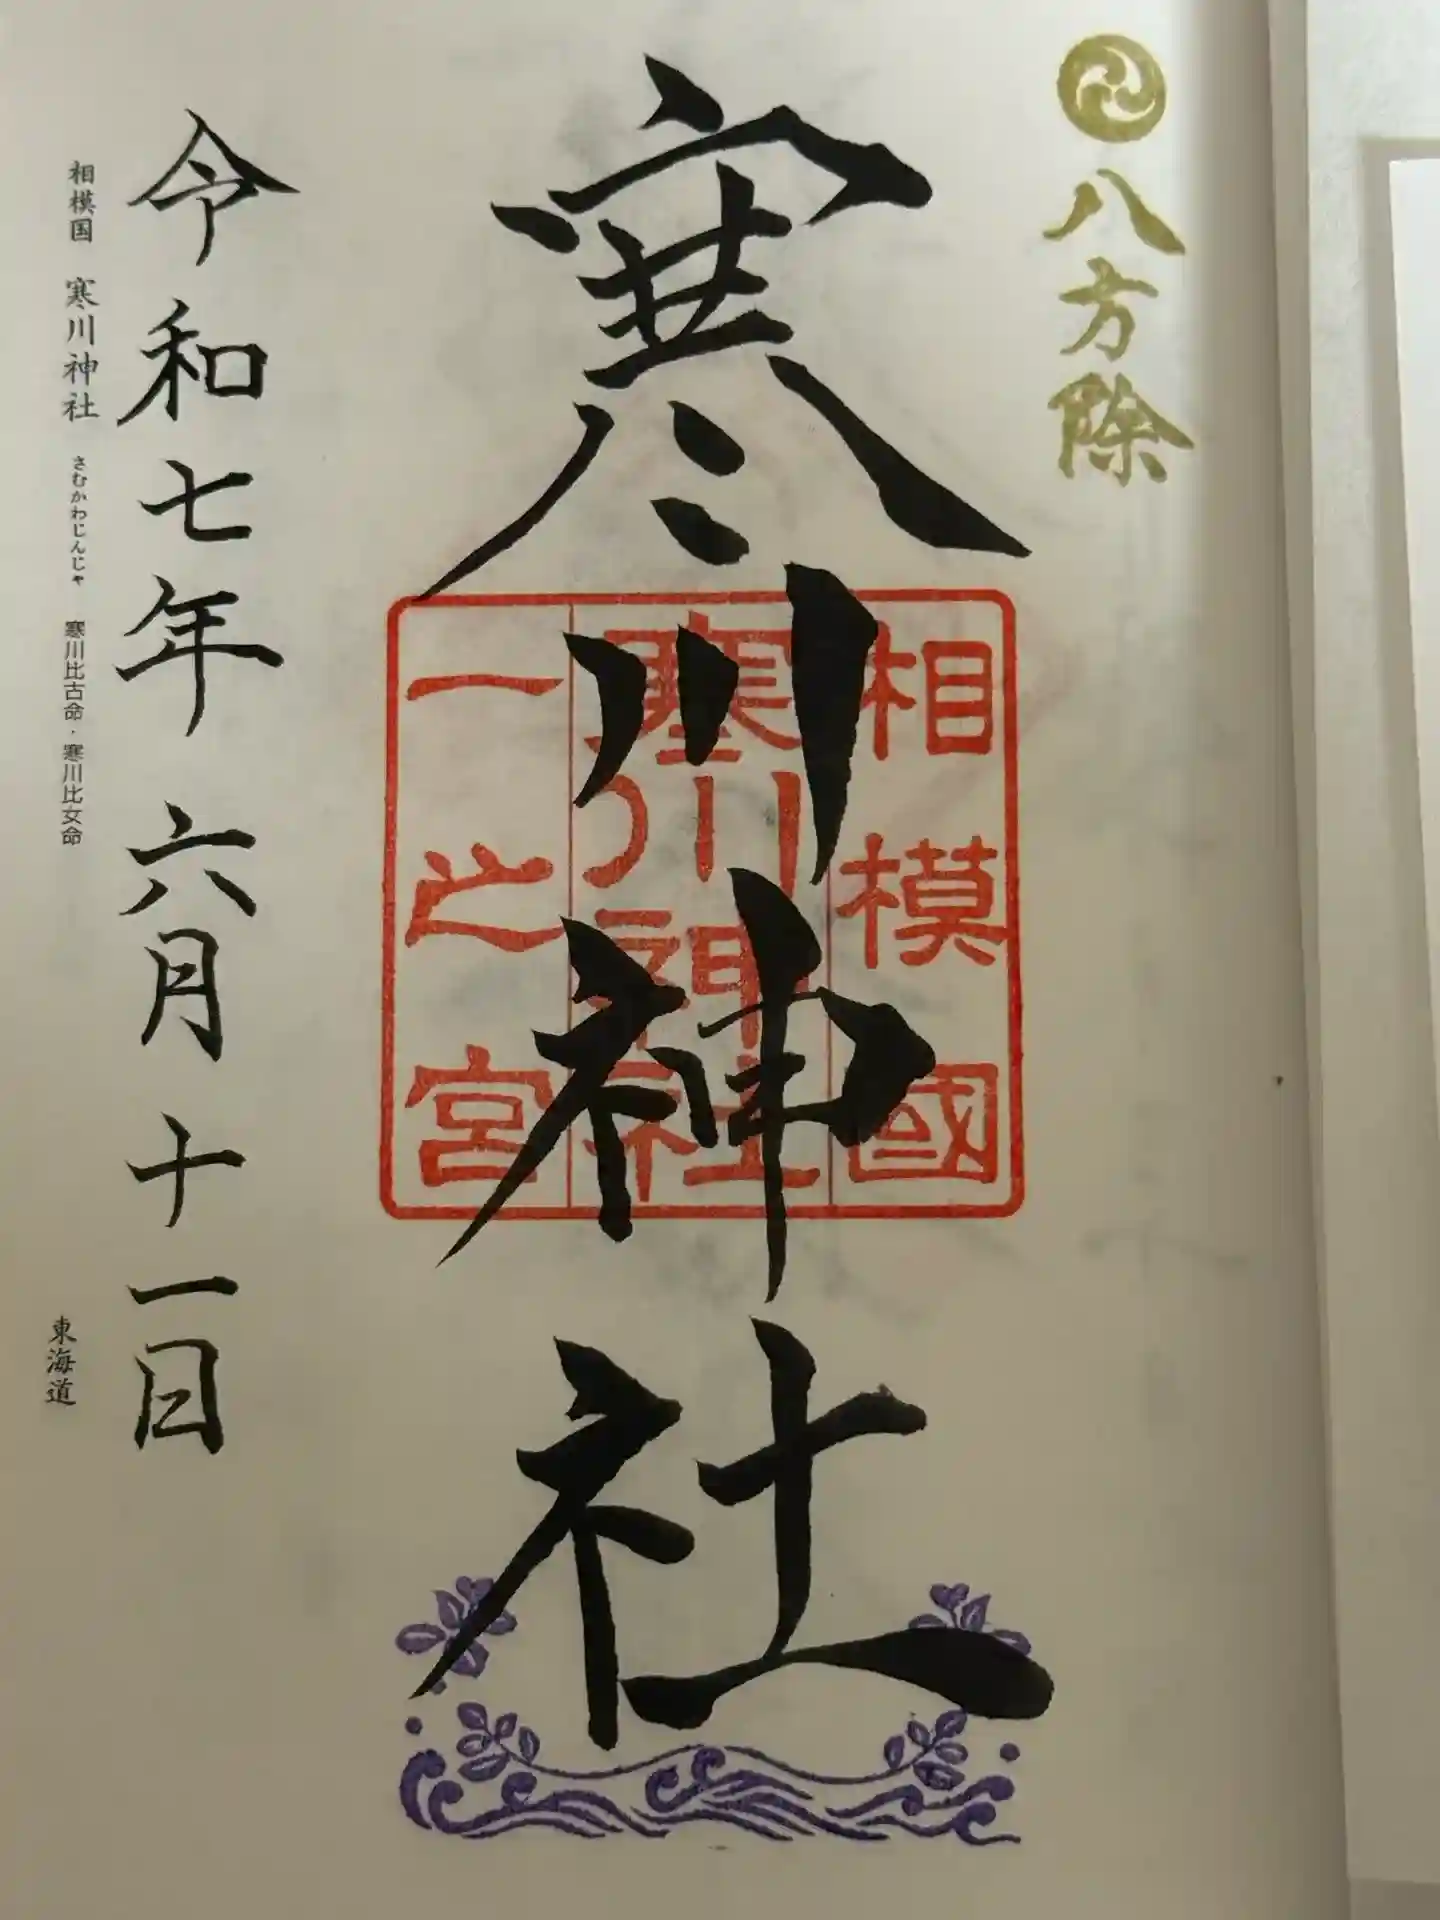 八方除
寒川神社
相模國
寒川神社
一之宮
令和七年六月十一日
相模国 寒川神社 さむかわじんじゃ 寒川比古命・寒川比女命
東海道